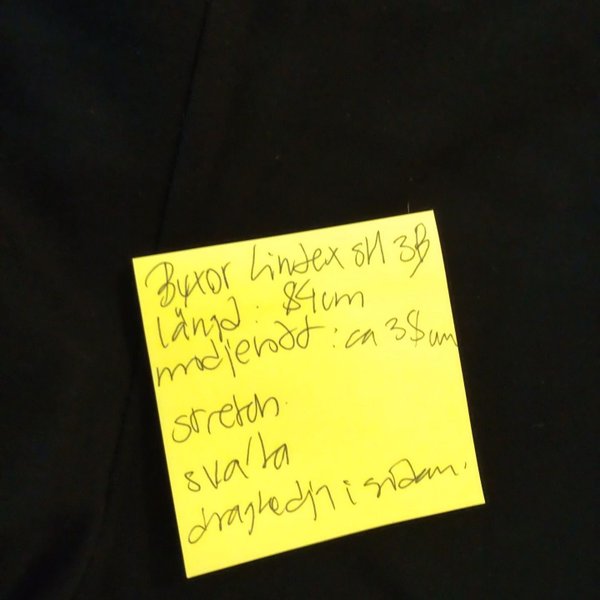 Byxor Lindex stl 38
längd: 84cm
midjevidd: ca 38cm
stretch
svarta
dragkedja i sidan.